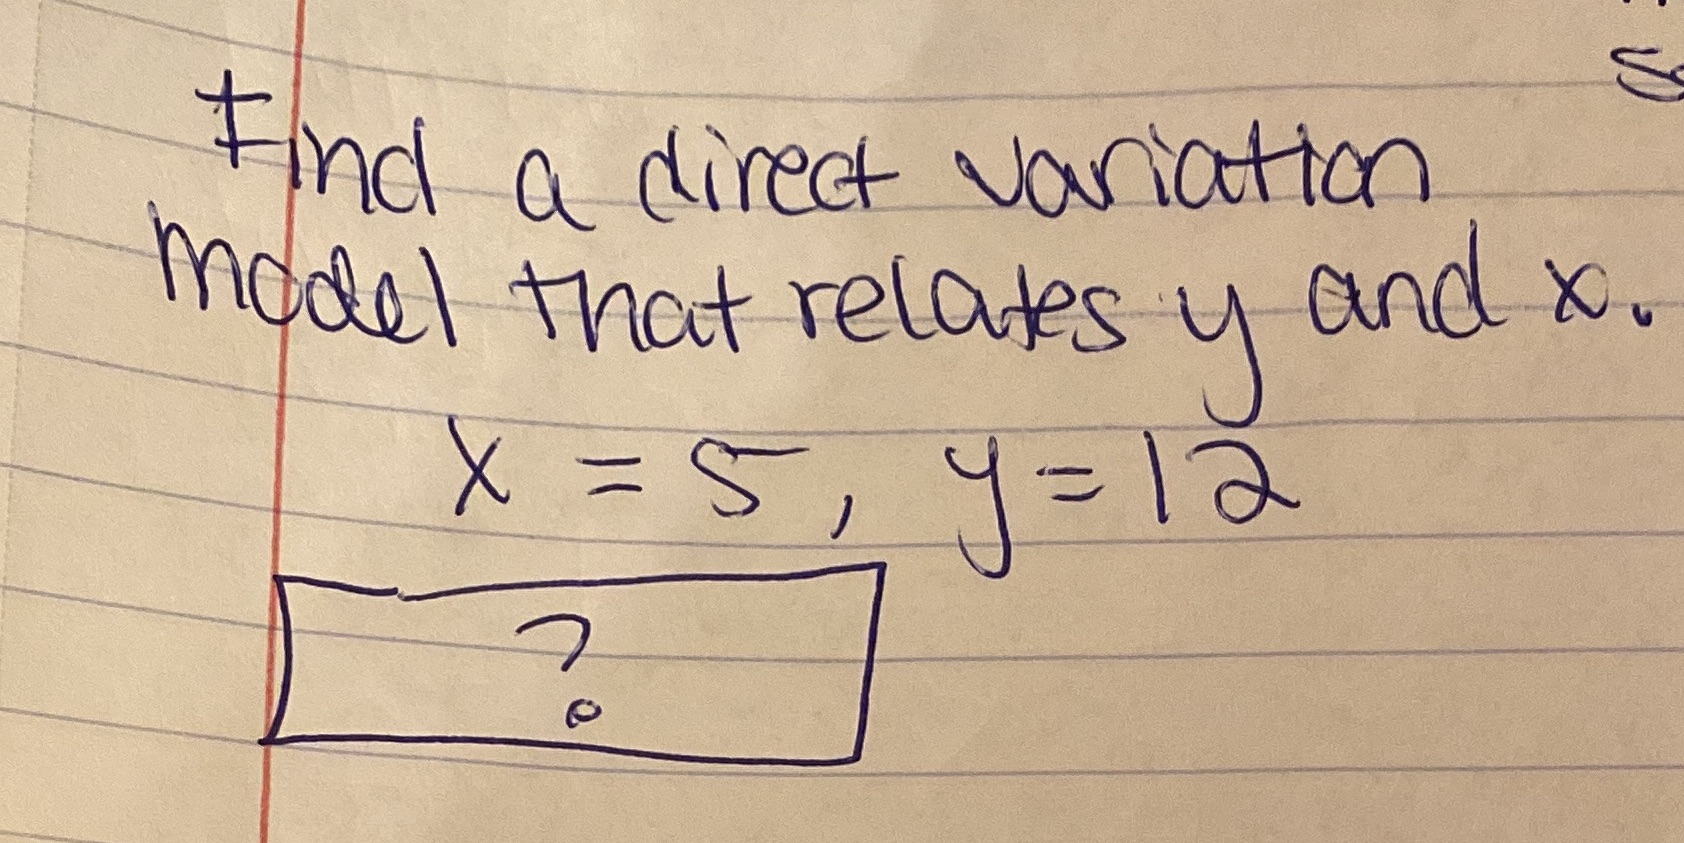 Find a direct variation
model that relates y and x.
x = 5, y = 12
?